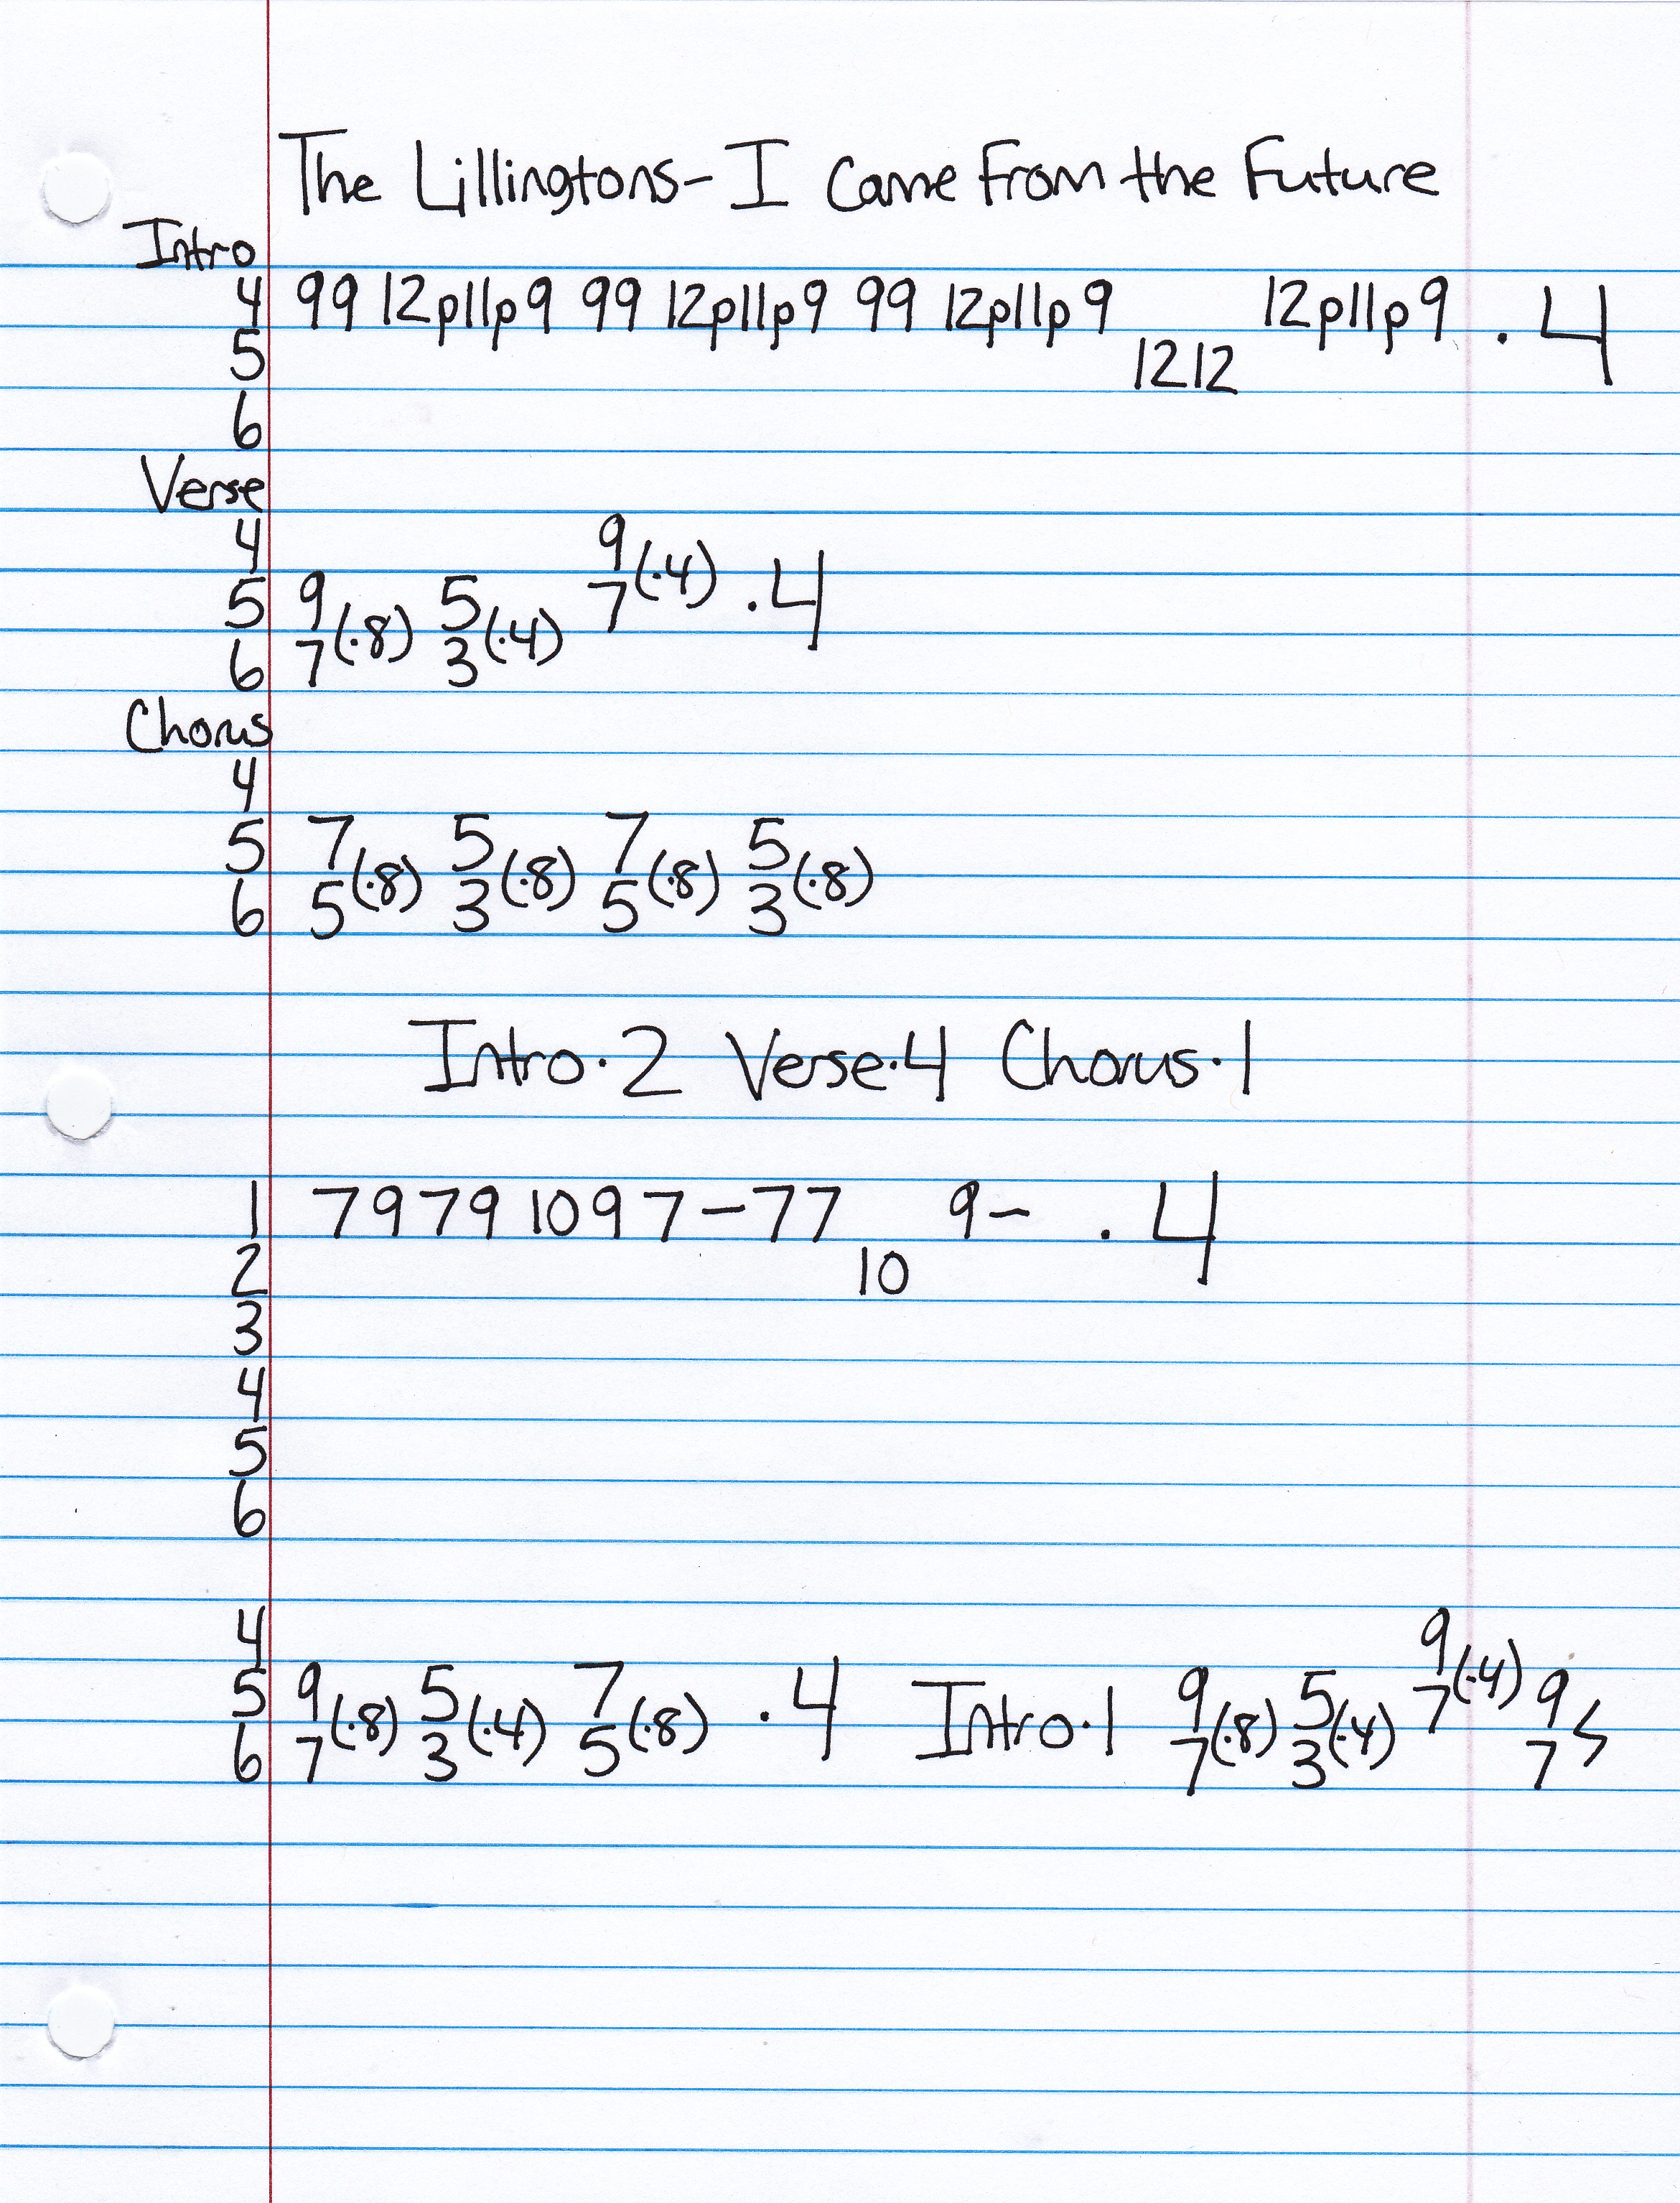 The Lillingtons - I Came From the Future
Intro
4 99 12p11p9 99 12p11p9 99 12p11p9 12p11p9 · 4
5 1212
6
Verse
4 9
5 9 5 7 (·4) · 4
6 7 (·8) 3 (·4)
Chorus
4
5 7 5 7 5
6 5 (·8) 3 (·8) 5 (·8) 3 (·8)
Intro·2 Verse·4 Chorus·1
1 7 9 7 9 10 9 7 - 7 7 9 - · 4
2 10
3
4
5
6
4 9
5 9 5 7 · 4 Intro·1 9 5 7 (·4) 9
6 7 (·8) 3 (·4) 5 (·8) 7 (·8) 3 (·4) 7